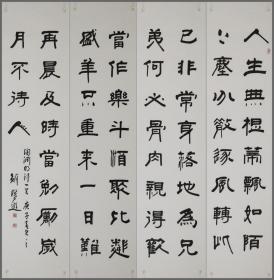 人生無根蒂飄如陌
上塵分散逐風轉此
已非常身落地為兄
弟何必骨肉親得歡
當作樂斗酒聚比鄰
盛年不重來一日難
再晨及時當勉勵歲
月不待人
陶淵明詩一首 庚子